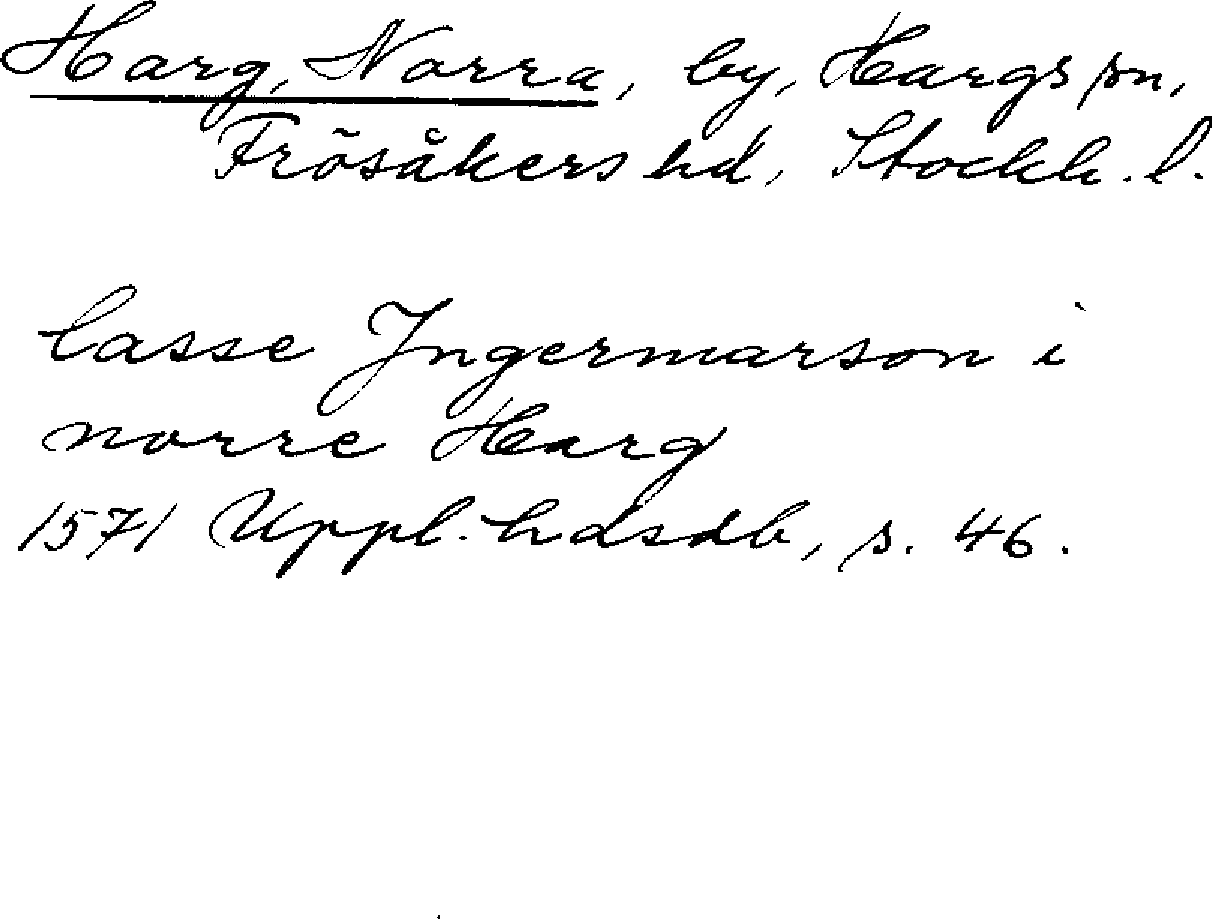 Harg, Norra, by, Hargs sn,
Frösåkers hd, Stockh. l.
lasse Jngermarson i
norre Harg
1571 Uppl. hdsdb, s. 46.